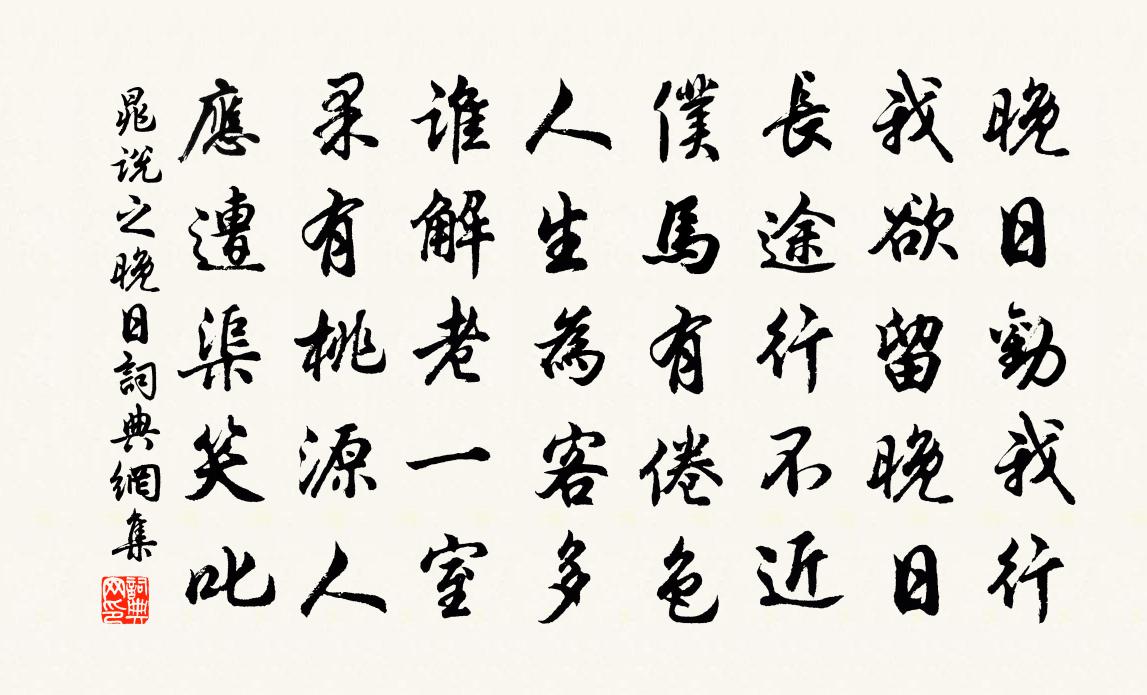 晚日勸我行
我欲留晚日
長途行不近
僕馬有倦色
人生為客多
誰解老一室
果有桃源人
應遭渠笑叱
晁說之晚日詞典網集
詞典
网印